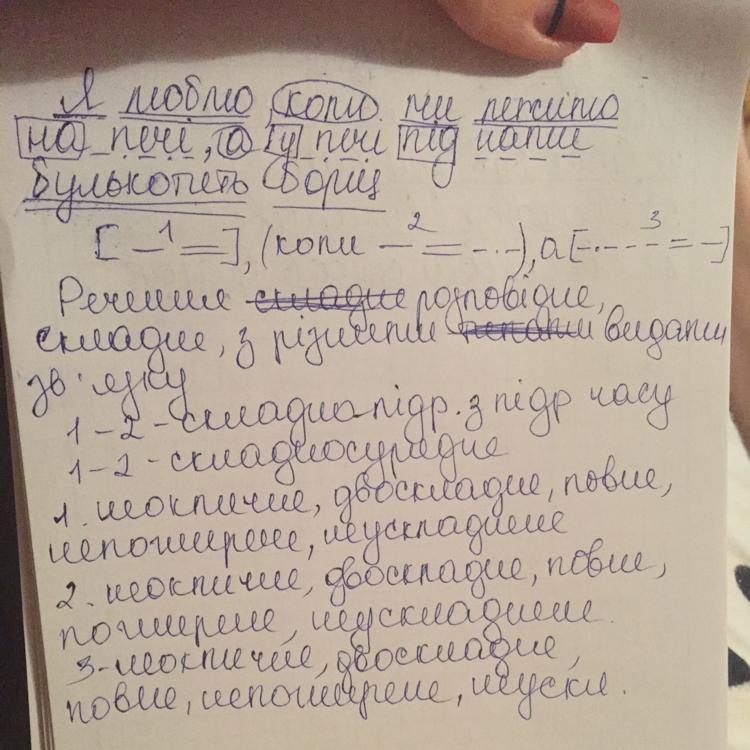 Я люблю коли ми лежимо
на печі, а у печі під нами
булькотить борщ
[— 1 =], (коли — 2 = -·-·), а [-·- -- 3 = -]
Речення складне розповідне,
складне, з різними типами видами
зв'язку
1-2-складно-підр. з підр часу
1-2-складносурядне
1. неокличне, двоскладне, повне,
непоширене, неускладнене
2. неокличне, двоскладне, повне,
поширене, неускладнене.
3-неокличне, двоскладне,
повне, непоширене, неускл.